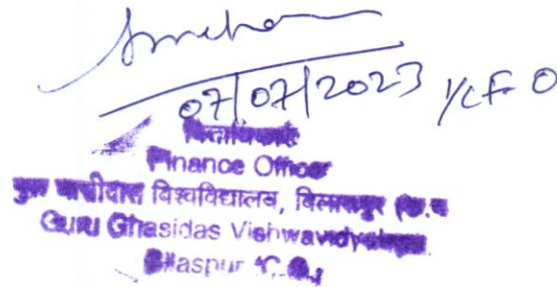 07/07/2023 I/c F.O
Finance Officer
गुरू घासीदास विश्वविद्यालय, बिलासपुर
Guru Ghasidas Vishwavidyalaya
Bilaspur